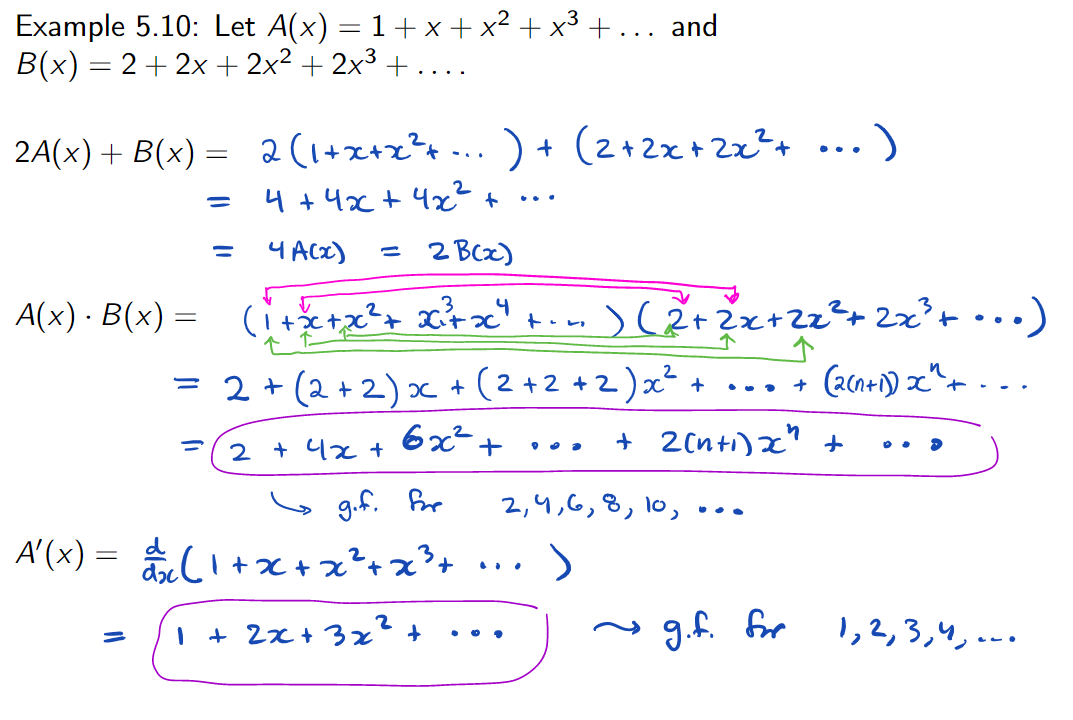 Example 5.10: Let A(x) = 1 + x + x² + x³ + ... and
B(x) = 2 + 2x + 2x² + 2x³ + ....
2A(x) + B(x) = 2(1+x+x²+ ...) + (2+2x+2x²+ ...)
= 4 + 4x + 4x² + ...
= 4A(x) = 2B(x)
A(x) · B(x) = (1+x+x²+x³+x⁴+...)(2+2x+2x²+2x³+...)
= 2 + (2+2)x + (2+2+2)x² + ... + (2(n+1))xⁿ + ...
= 2 + 4x + 6x² + ... + 2(n+1)xⁿ + ...
↳ g.f. for 2,4,6,8,10, ...
A′(x) = d/dx(1+x+x²+x³+ ...)
= 1 + 2x + 3x² + ... ⇝ g.f. for 1,2,3,4,...